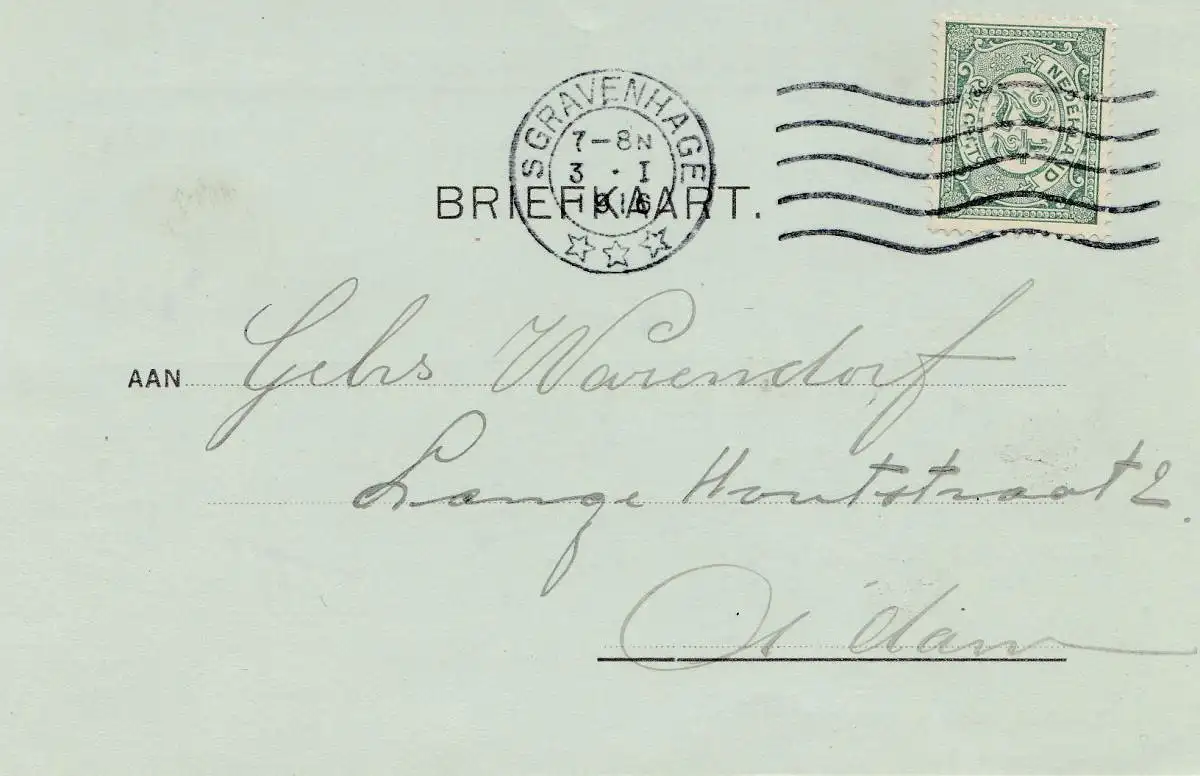 SGRAVENHAGE
7-8N
3 . I
1916
NEDERLAND
2½
2½ CENT
BRIEFKAART.
AAN Gebrs Warendorf
Lange Houtstraat 2.
A'dam